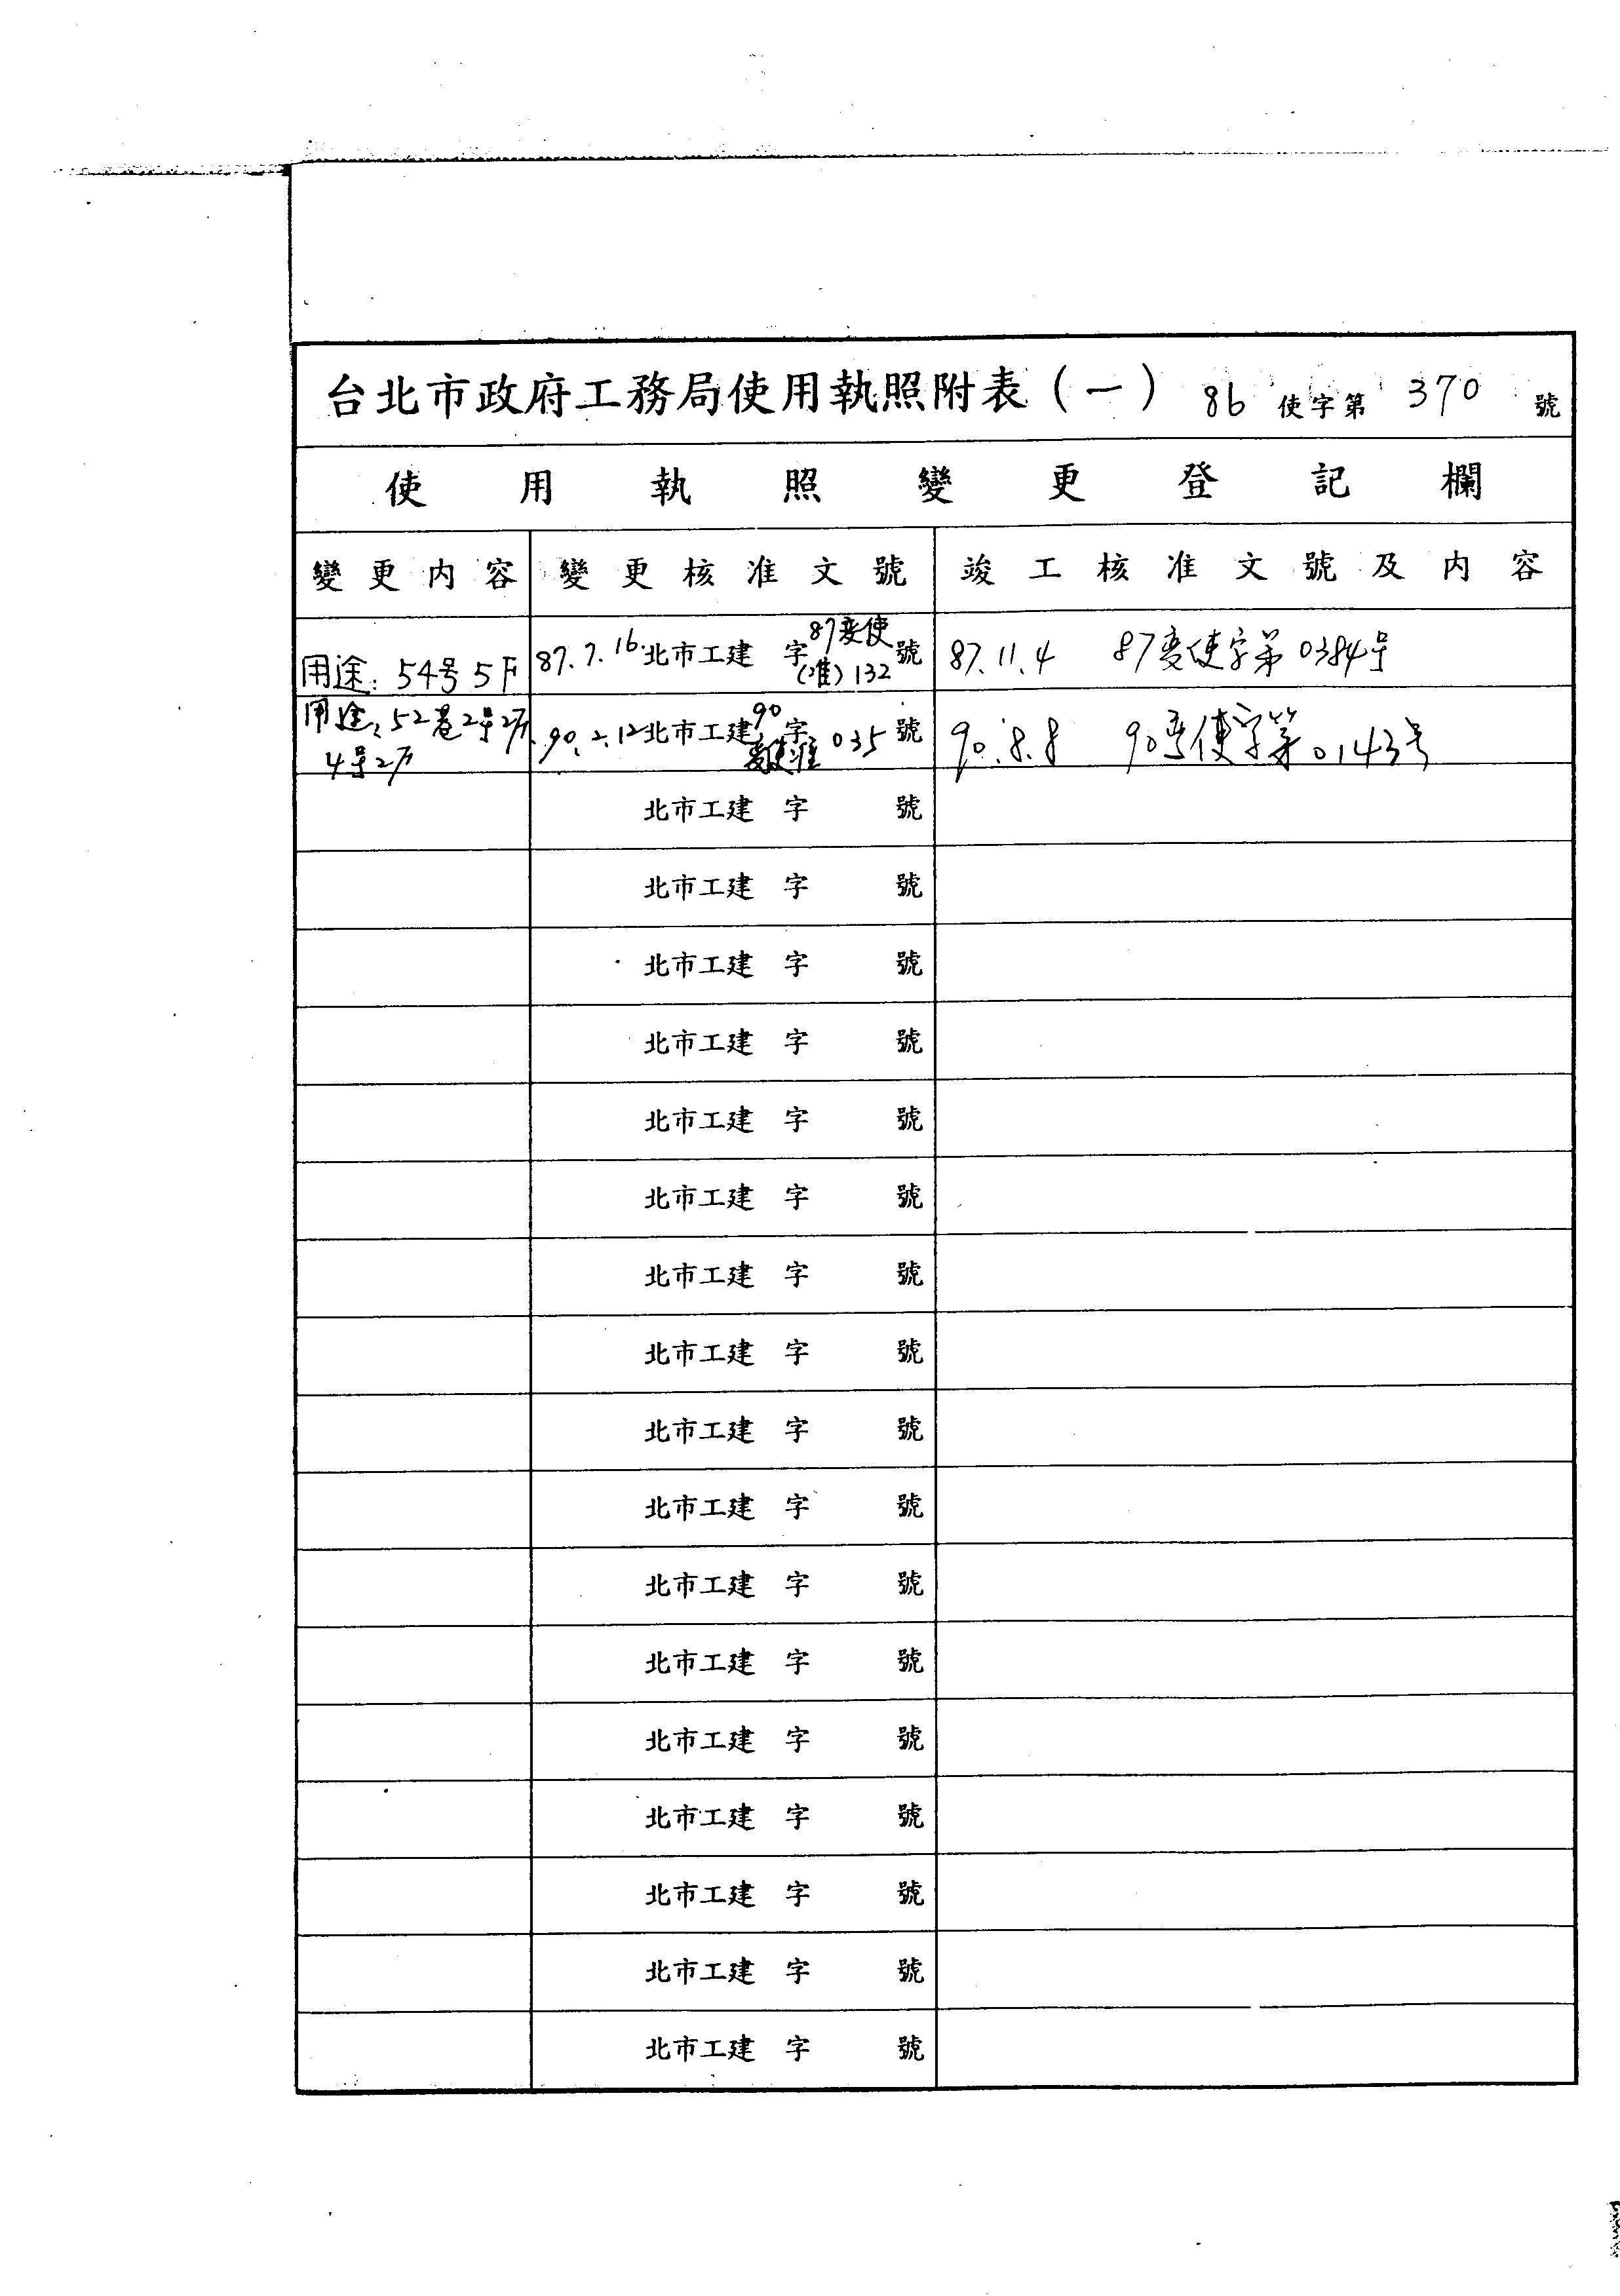 台北市政府工務局使用執照附表(一) 86 使字第 370 號
使用執照變更登記欄
變更內容 變更核准文號 竣工核准文號及內容
用途:54号5F 87.7.16.北市工建 字87变使(准)132號 87.11.4 87变使字第0384号
用途:52巷2号2F. 90.2.12北市工建 字90变使准035號 90.8.8 90变使字第0143号
4号2F
北市工建 字 號
北市工建 字 號
北市工建 字 號
北市工建 字 號
北市工建 字 號
北市工建 字 號
北市工建 字 號
北市工建 字 號
北市工建 字 號
北市工建 字 號
北市工建 字 號
北市工建 字 號
北市工建 字 號
北市工建 字 號
北市工建 字 號
北市工建 字 號
北市工建 字 號